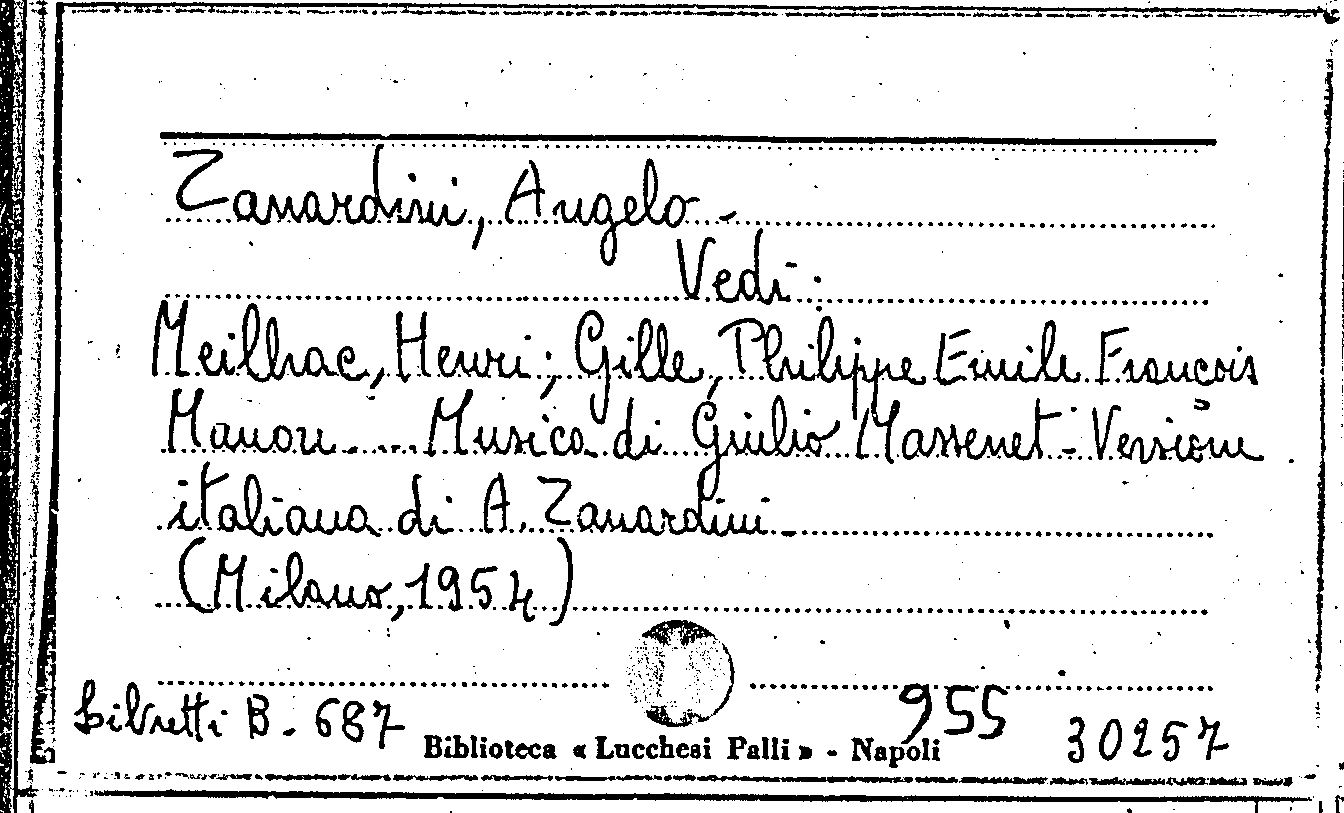 Zanardini, Angelo -
Vedi:
Meilhac, Henri; Gille, Philippe Emile François
Manon.... Musica di Giulio Massenet - Versione
italiana di A. Zanardini -
(Milano, 1954)
Libretti B. 687
955
30257
Biblioteca « Lucchesi Palli » - Napoli